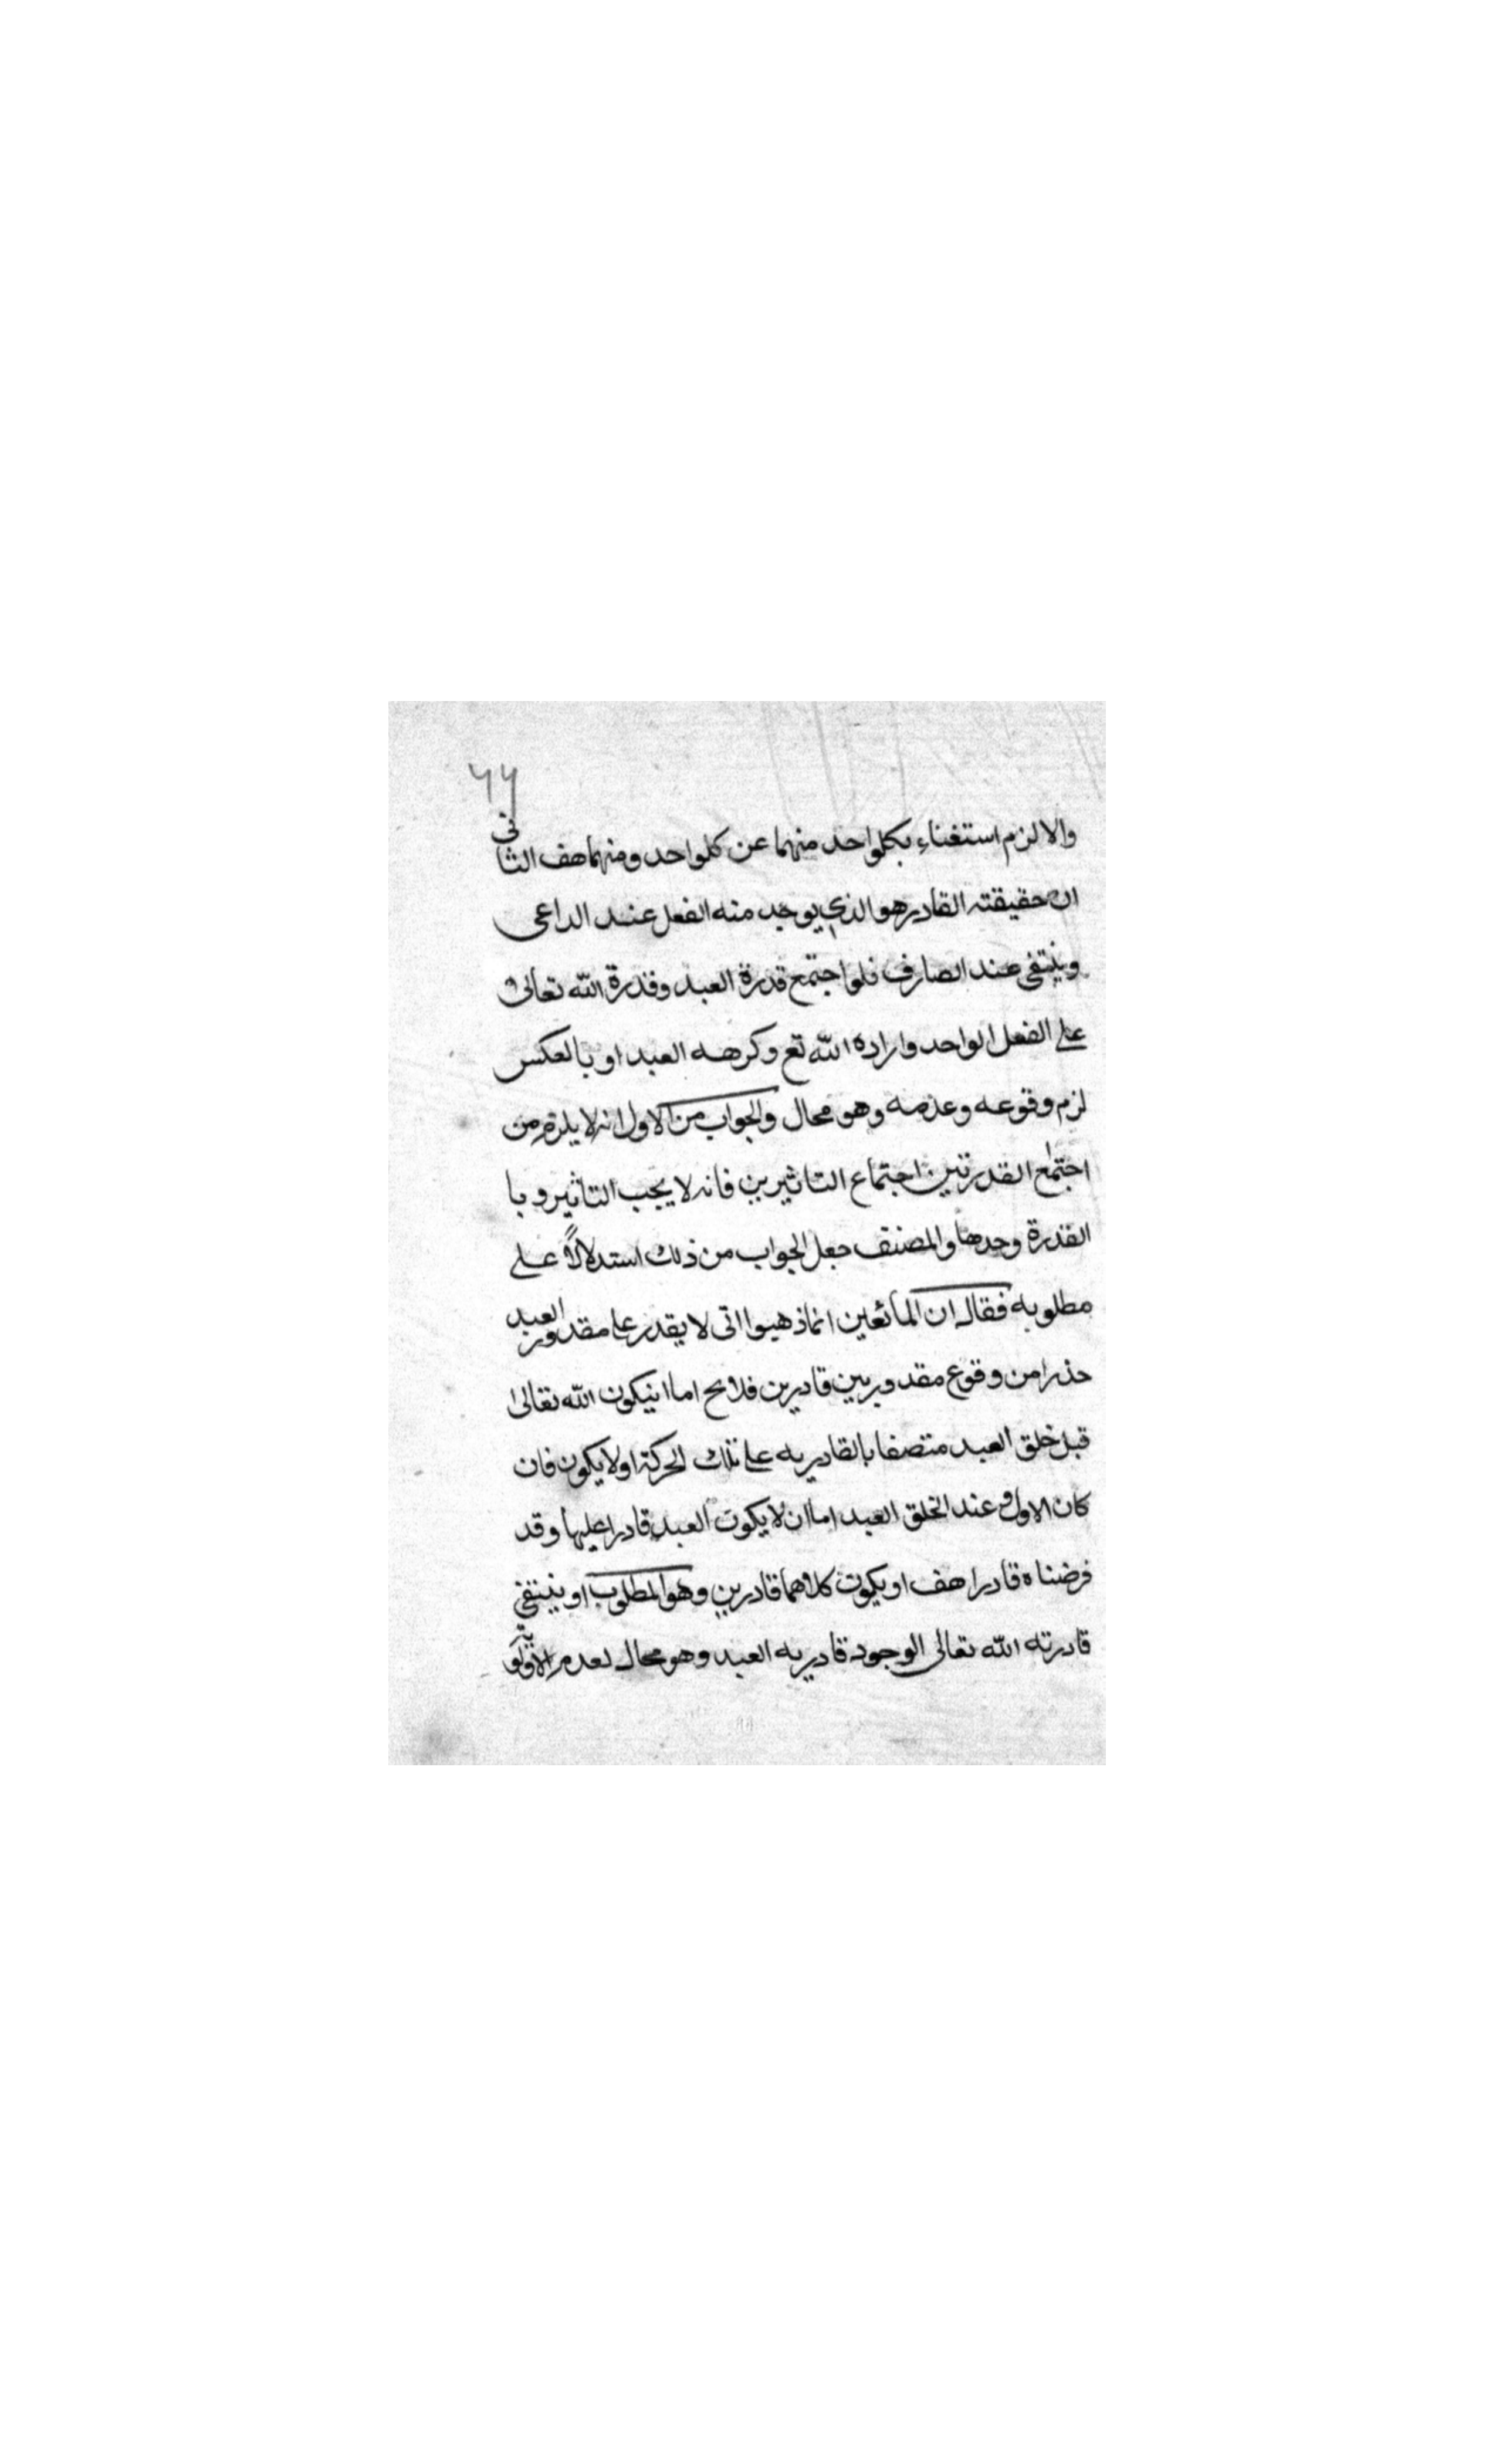 ٦٦
والا لزم استغناء بكلواحد منهما عن كلواحد ومنهما هف الثانى
ان حقيقته القادر هو الذي يوجد منه الفعل عند الداعى
وينتفى عند الصارف فلو اجتمع قدرة العبد وقدرة الله تعالى
على الفعل الواحد واراده الله تع وكرهه العبد او بالعكس
لزم وقوعه وعدمه وهو محال والجواب من الاول انه لا يلزم من
اجتماع القدرتين اجتماع التاثيرين فانه لا يجب التاثير و با
القدرة وحدها والمصنف جعل الجواب من ذلك استدلالاً على
مطلوبه فقال ان المانعين انما ذهبوا الى لا يقدر على مقدور العبد
حذرا من وقوع مقدور بين قادرين فلا مح اما انيكون الله تعالى
قبل خلق العبد متصفا بالقادريه على تلك الحركة اولا يكون فان
كان الاول و عند الخلق العبد اما ان لا يكون العبد قادرا عليها وقد
فرضناه قادرا هف او يكون كلاهما قادرين وهو المطلوب او ينتفى
قادرته الله تعالى الوجود قادريه العبد وهو محال لعدم الاولويه